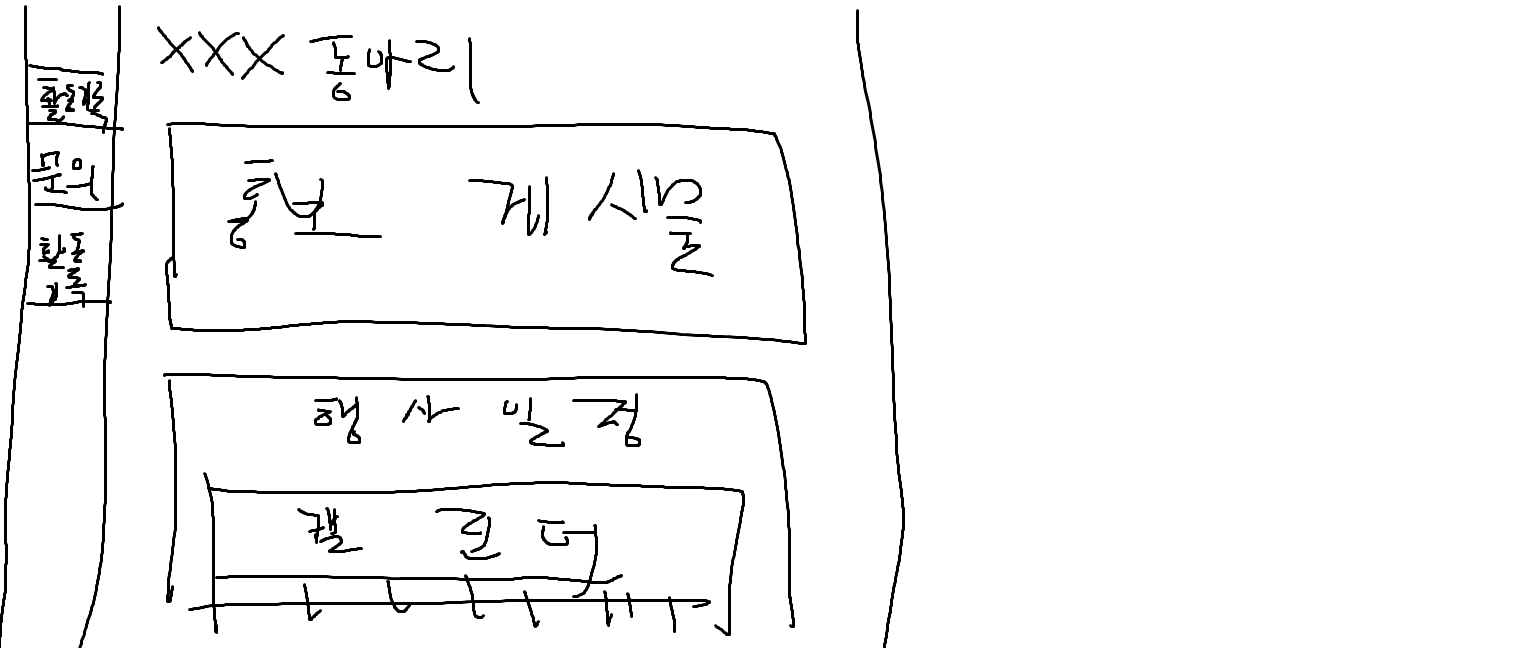 XXX 동아리
활동기록
문의
활동
기록
홍보 게시물
행사일정
캘린더